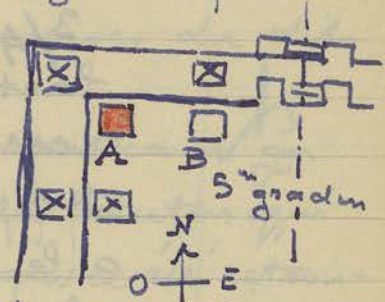 A B
5ᵐ gradin
N
O E